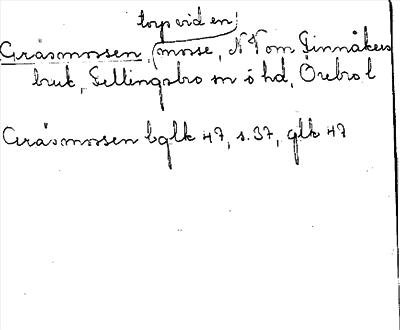 torp vid en
Gräsmossen, mosse, NV om Finnåkers
bruk, Fellingsbro sn ö hd, Örebro l
Gräsmossen bglk 47, s. 37, glk 47